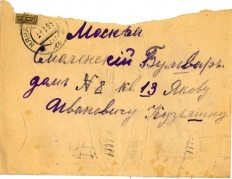 Москва
Смоленскій Бульваръ
домъ № 8 кв. 13 Якову
Ивановичу Кузьмину